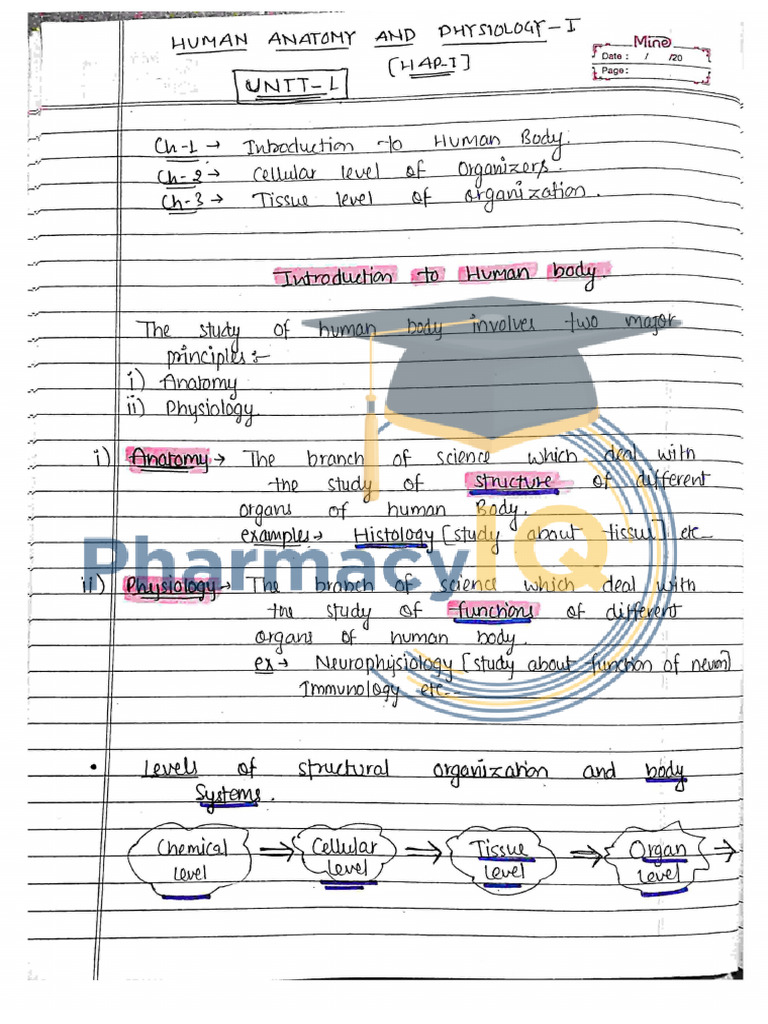 HUMAN ANATOMY AND PHYSIOLOGY-I
[HAP-I]
UNIT-1
Mine
Date : / /20
Page:
Ch-1 → Introduction to Human Body.
Ch-2 → Cellular level of Organizers.
Ch-3 → Tissue level of organization.
Introduction to Human body.
The study of human body involves two major
principles:-
i) Anatomy
ii) Physiology
i) Anatomy → The branch of science which deal with
the study of structure of different
organs of human Body.
examples → Histology [study about tissue] etc
PharmacyIQ
ii) Physiology → The branch of science which deal with
the study of functions of different
organs of human body.
ex → Neurophysiology [study about function of neuron]
Immunology etc..
• Levels of structural organization and body
Systems.
Chemical level ⇒ Cellular level ⇒ Tissue level ⇒ Organ level →